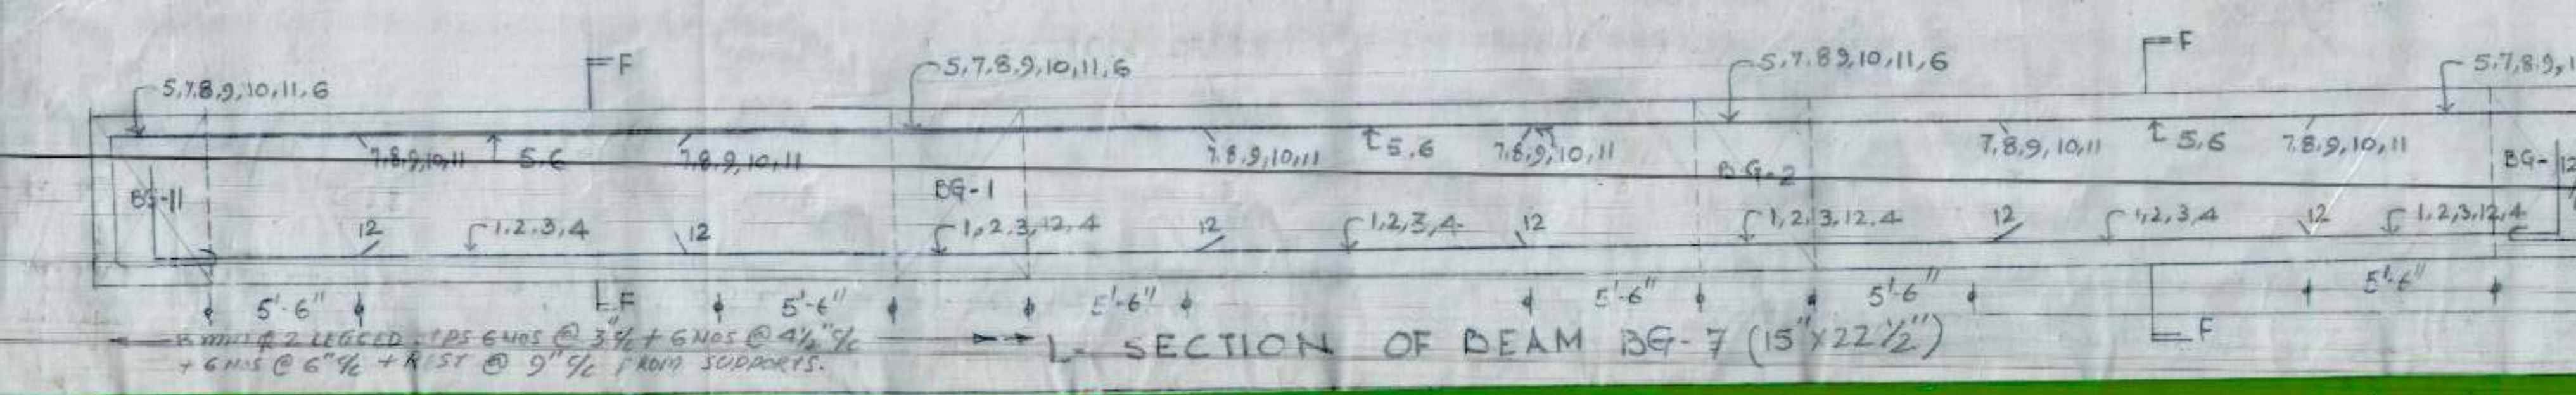 F
F
5,7,8,9,10,11,6
5,7,8,9,10,11,6
5,7,8,9,10,11,6
5,7,8,9,1
7,8,9,10,11
5,6
7,8,9,10,11
7,8,9,10,11
5,6
7,8,9,10,11
7,8,9,10,11
5,6
7,8,9,10,11
BG-11
BG-1
BG-2
BG-
12
12
1,2,3,4
12
1,2,3,12,4
12
1,2,3,4
12
1,2,3,12,4
12
1,2,3,4
12
1,2,3,12,4
5'-6"
F
5'-6"
5'-6"
5'-6"
5'-6"
5'-6"
F
2 LEGGED 6 NOS @ 3" c/c + 6 NOS @ 4½" c/c
+ 6 NOS @ 6" c/c + REST @ 9" c/c FROM SUPPORTS.
L- SECTION OF BEAM BG-7 (15"X22½")